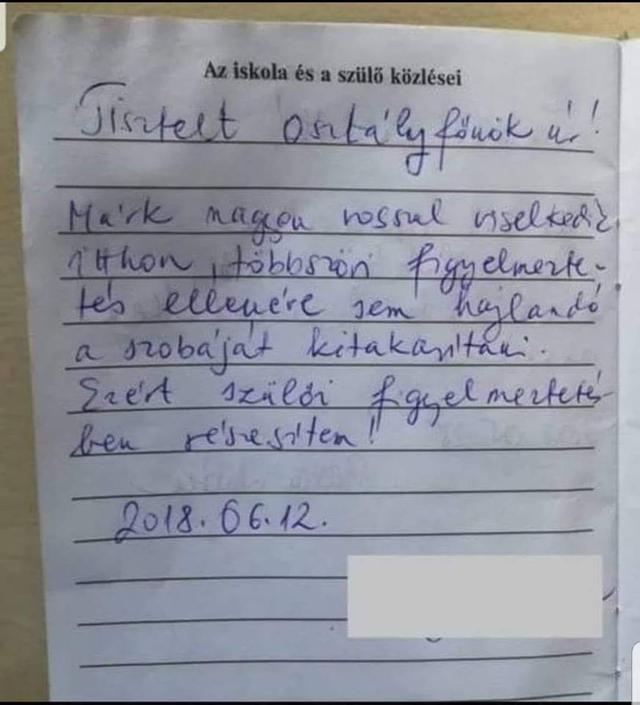 Az iskola és a szülő közlései
Tisztelt osztályfőnök úr!
Márk nagyon rosszul viselkedik
itthon, többszöri figyelmezte-
tés ellenére sem hajlandó
a szobáját kitakarítani.
Ezért szülői figyelmeztetés-
ben részesítem!
2018.06.12.